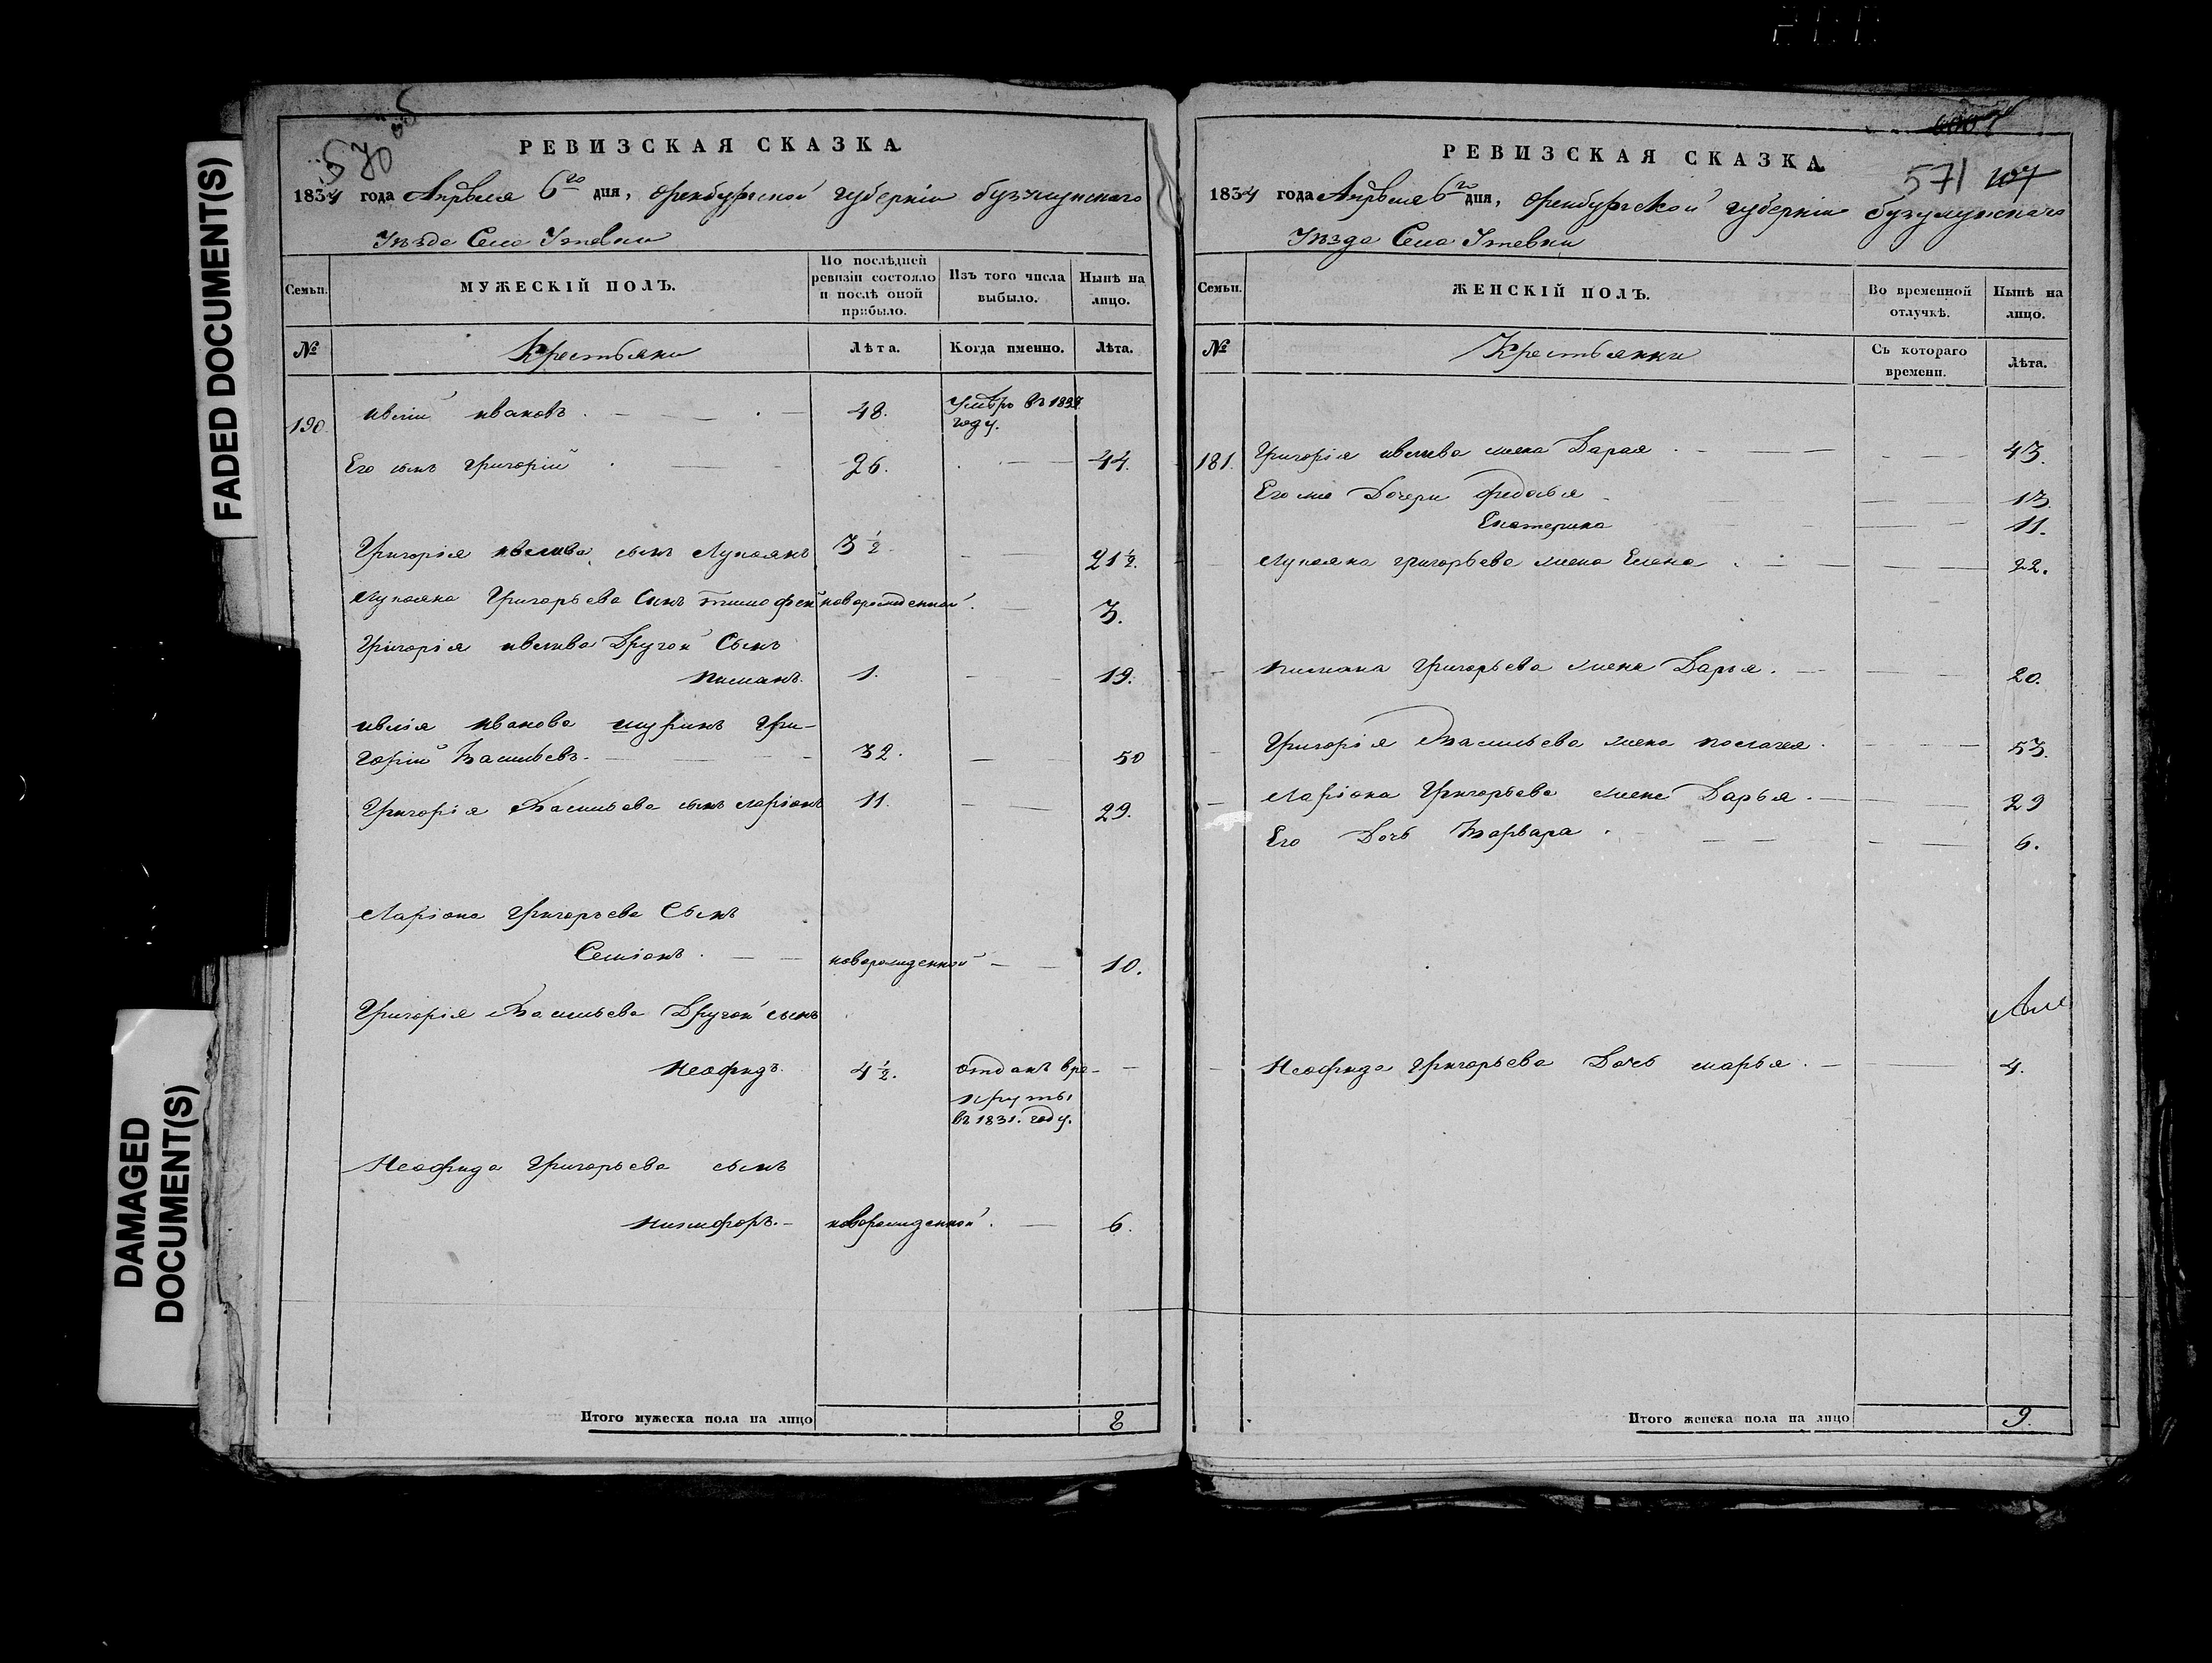 FADED DOCUMENT(S)
DAMAGED
DOCUMENT(S)
570
РЕВИЗСКАЯ СКАЗКА
1834 года Апрѣля 6го дня, Оренбургской губерніи бузулукского
Уѣзда Села Утевки
Семьи.
МУЖЕСКІЙ ПОЛЪ.
По послѣдней ревизіи состояло и послѣ оной прибыло.
Изъ того числа выбыло.
Нынѣ на лицо.
№
Крестьяни
Лѣта.
Когда именно.
Лѣта.
190. ивлій ивановъ 48. Умѣръ въ
году.
Его сынъ григорій 26. 44.
Григорія ивлива сынъ Лупоянъ 3 1/2 21 1/2.
Лупояна Григорьева Сынъ тимофей новорожденной. 3.
Григорія ивлива Другой Сынъ
пиманъ. 1. 19.
ивлія иванова шуринъ Гри-
горій Васильевъ. 32. 50
Григорія Васильева сынъ ларіонъ 11. 29.
Ларіона Григорьева Сынъ
Семіонъ. новорожденной 10.
Григорія Васильева Другой сынъ
Неофидъ. 4 1/2. отданъ вре-
круты
въ 1831. году.
Неофида Григорьева сынъ
никифоръ. новорожденной. 6.
Итого мужеска пола на лицо 8
571
РЕВИЗСКАЯ СКАЗКА
1834 года Апрѣля 6го дня, Оренбургской губерніи бузулукского
Уѣзда Села Утевки
Семьи.
ЖЕНСКІЙ ПОЛЪ.
Во временной отлучкѣ.
Нынѣ на лицо.
№
Крестьянки
Съ котораго времени.
Лѣта.
181. Григорія ивлива жена Дарая 43.
Его же Дочери федосья 13.
Екатерина 11.
Лупояна григорьева жена Елена 22.
пимана Григорьева жена Дарья. 20.
Григорія Васильева жена пелагея. 53.
Ларіона Григорьева жена Дарья. 29
Его Дочь Варвара 6.
Неофида Григорьева Дочь марья. 4.
Итого женска пола на лицо 9.